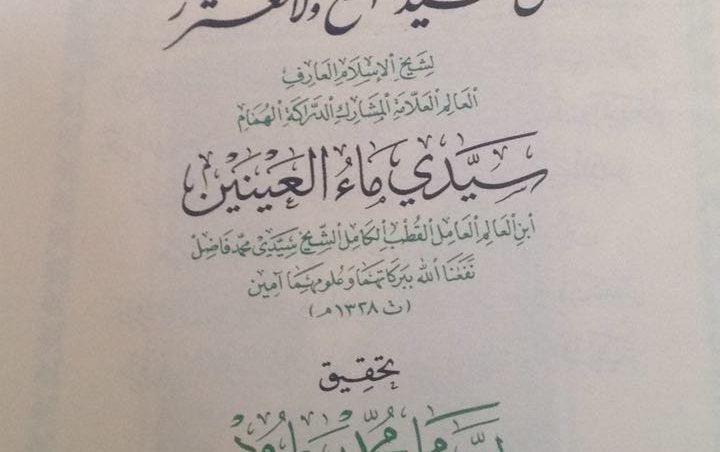 ولا تغتر
لشيخ الإسلام العارف
العالم العلامة المشارك الدراكة الهمام
سيدي ماء العينين
ابن العالم العامل القطب الكامل الشيخ سيدي محمد فاضل
نفعنا الله ببركاتهما وعلومهما آمين
(ت ١٣٢٨ هـ)
تحقيق
محمد